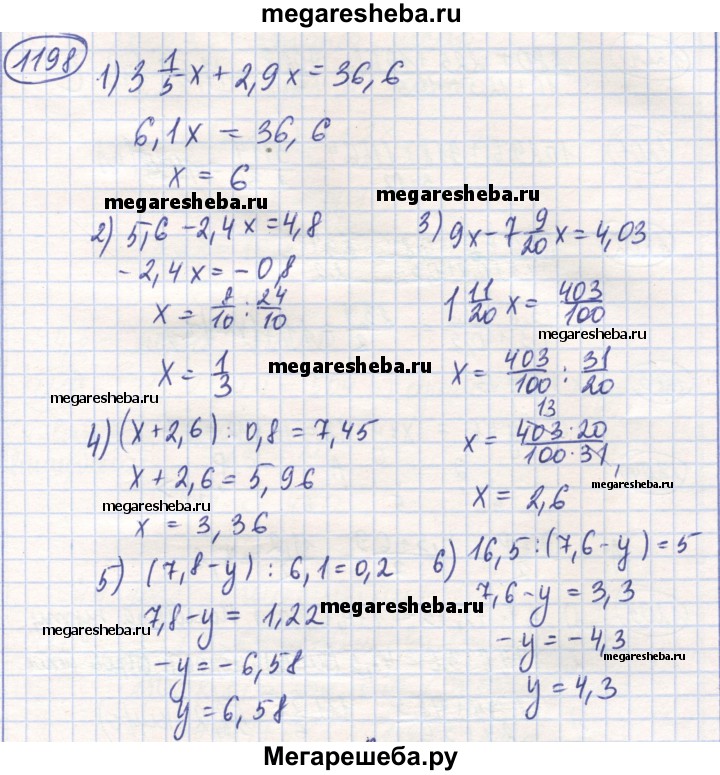 megaresheba.ru
1198
1) 3 1/5 x + 2,9x = 36,6
6,1x = 36,6
x = 6
megaresheba.ru
2) 5,6 - 2,4x = 4,8
-2,4x = -0,8
x = 8/10 : 24/10
x = 1/3
megaresheba.ru
megaresheba.ru
3) 9x - 7 9/20 x = 4,03
1 11/20 x = 403/100
megaresheba.ru
x = 403/100 : 31/20
13
x = 403·20/100·31
x = 2,6
megaresheba.ru
megaresheba.ru
4) (x + 2,6) : 0,8 = 7,45
x + 2,6 = 5,96
megaresheba.ru
x = 3,36
5) (7,8 - y) : 6,1 = 0,2
7,8 - y = 1,22
megaresheba.ru
megaresheba.ru
-y = -6,58
y = 6,58
6) 16,5 : (7,6 - y) = 5
7,6 - y = 3,3
-y = -4,3
megaresheba.ru
y = 4,3
Мегарешеба.ру